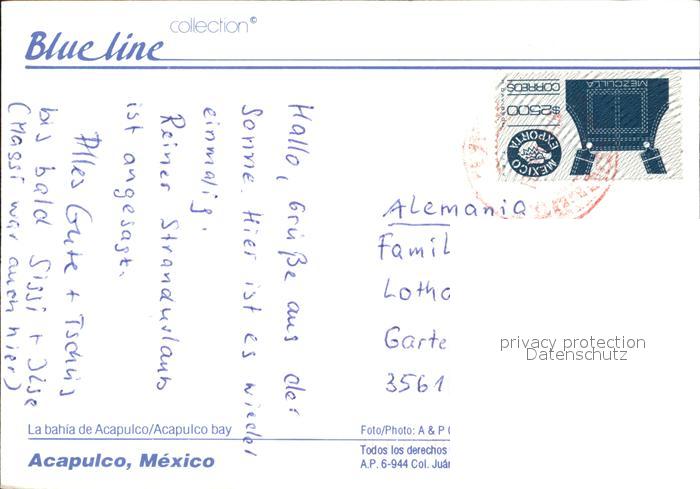 collection©
Blue line
Hallo, Grüße aus der
Sonne. Hier ist es wieder
einmalig.
Reiner Strandurlaub
ist angesagt.
Alles Gute + Tschüs
bis bald Sissi + Ilse
(Massi war auch hier)
MEZCLILLA
CORREOS
$2500
MEXICO
EXPORTA
Alemania
Famil
Lotha
Garte
3561
privacy protection
Datenschutz
La bahía de Acapulco/Acapulco bay
Acapulco, México
Foto/Photo: A & P
Todos los derechos
A.P. 6-944 Col. Juár